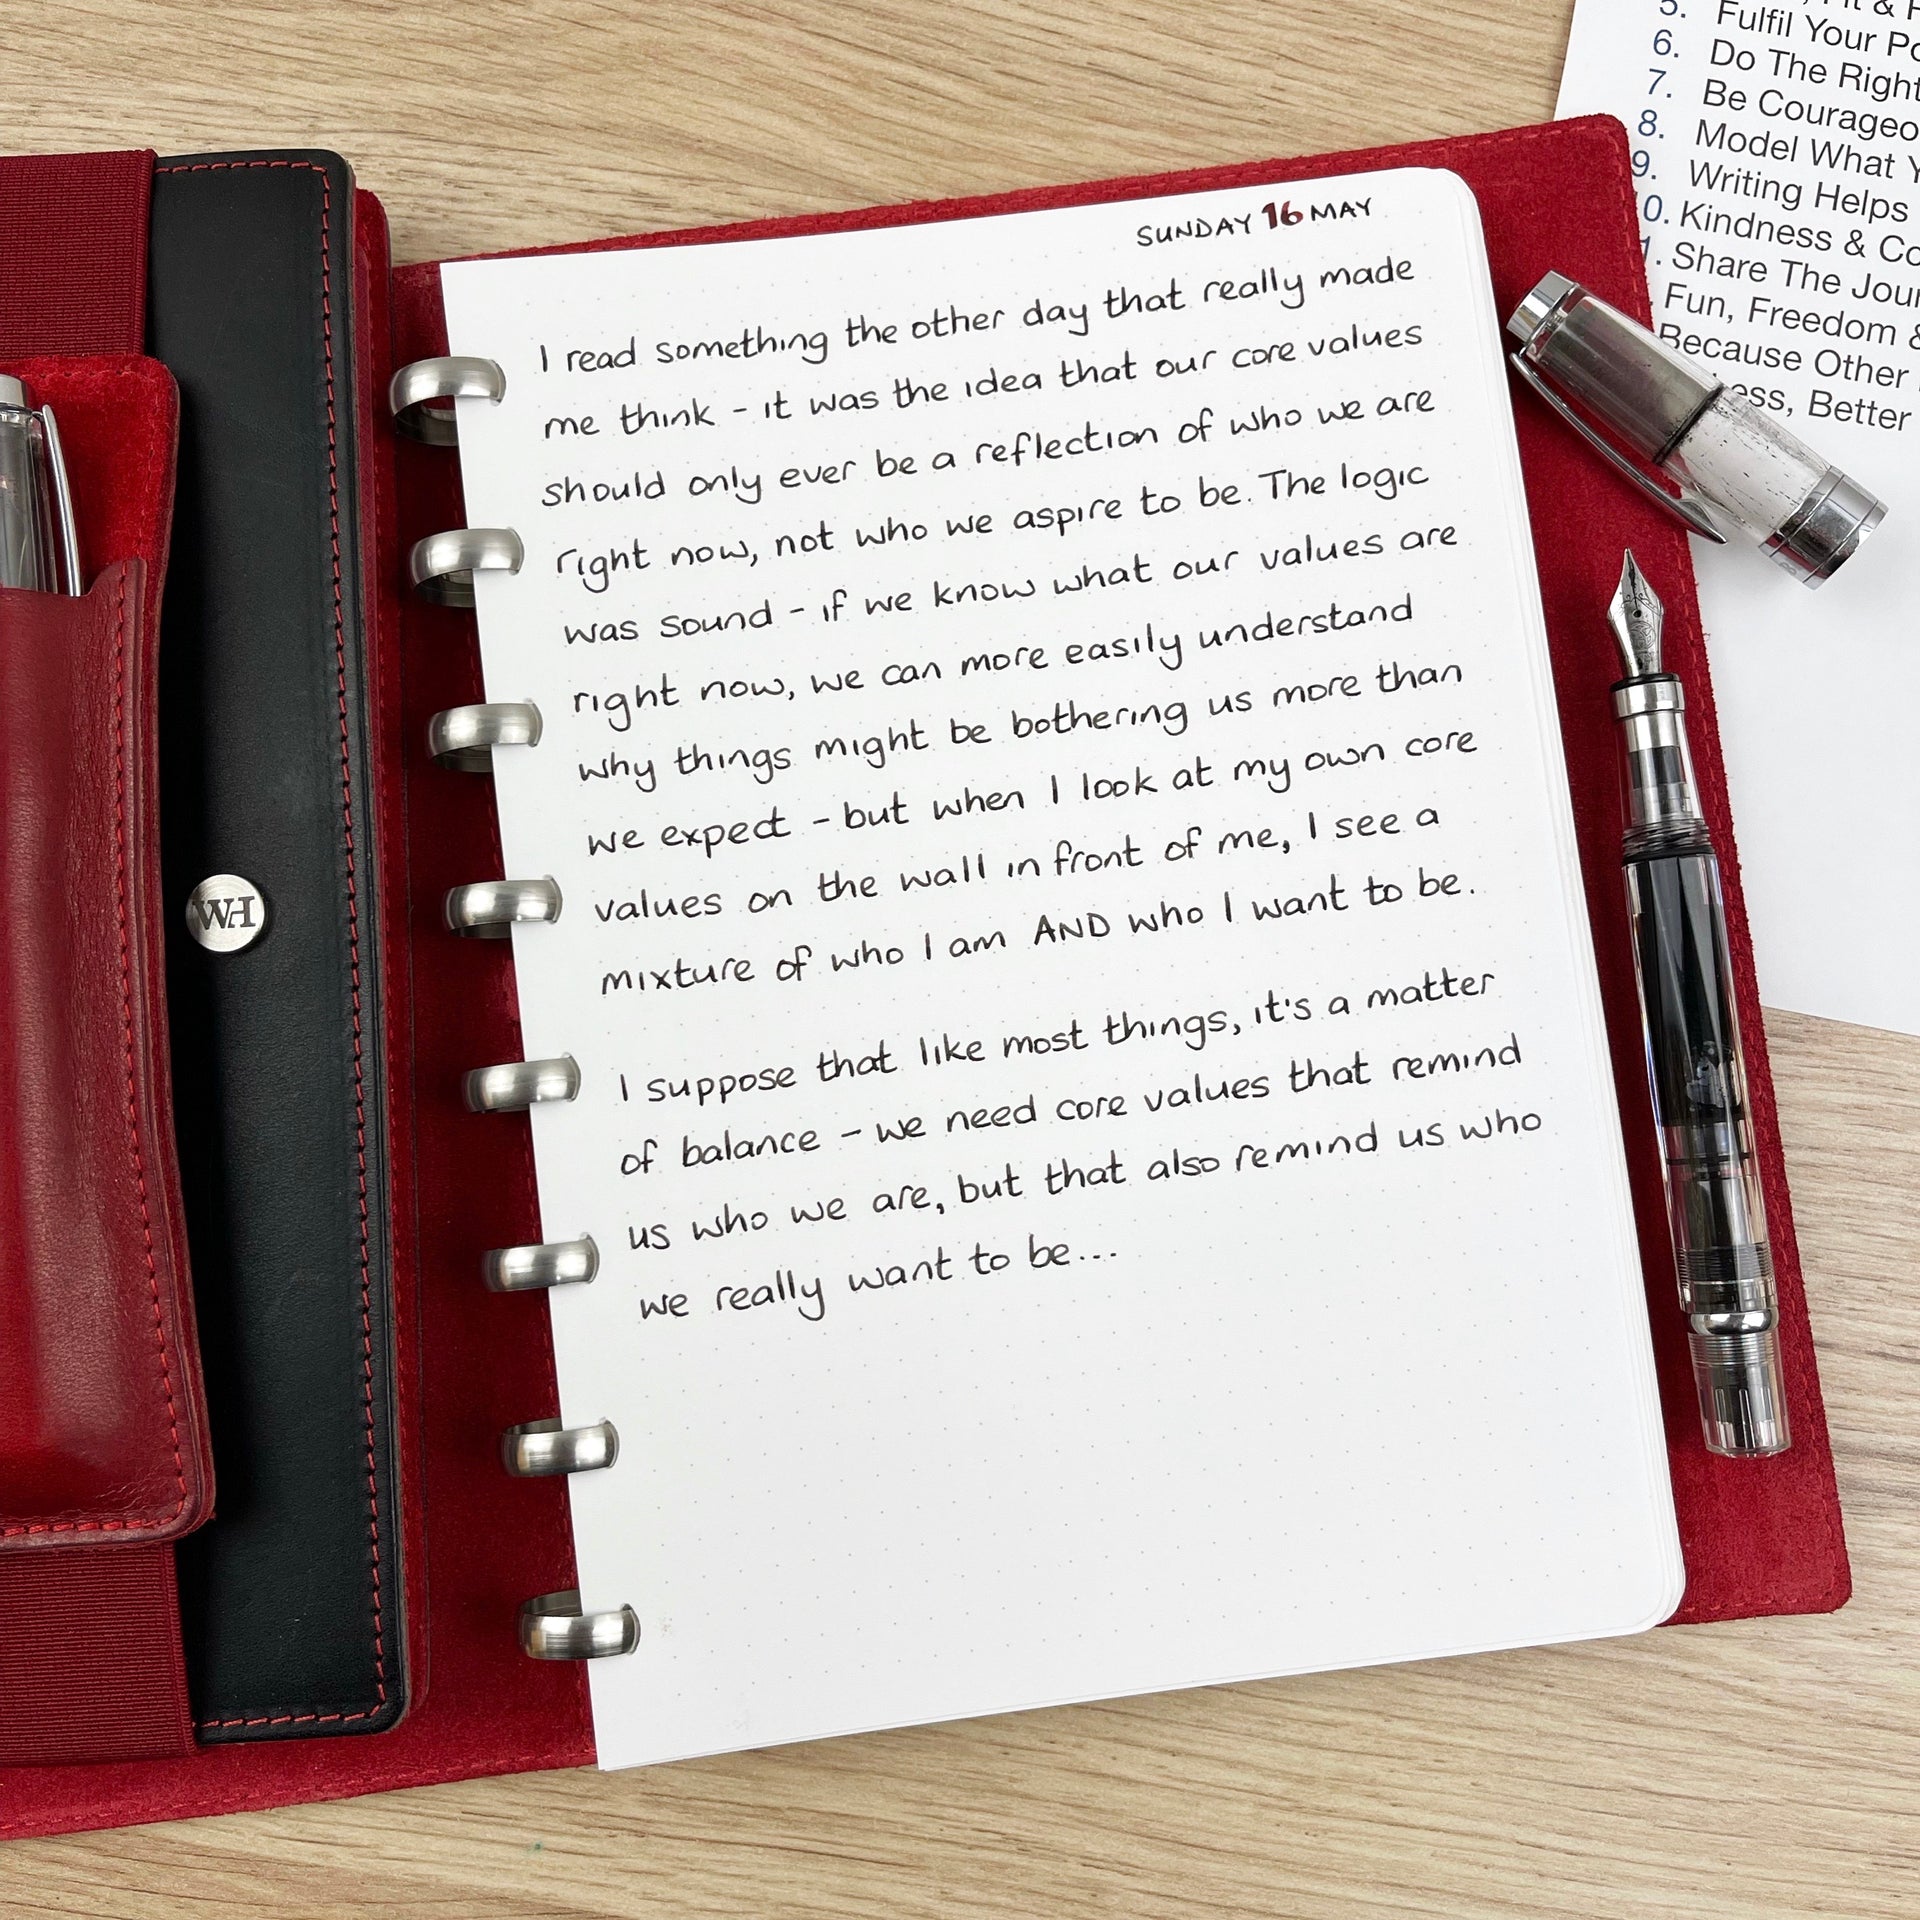 SUNDAY 16 MAY
I read something the other day that really made
me think - it was the idea that our core values
should only ever be a reflection of who we are
right now, not who we aspire to be. The logic
was sound - if we know what our values are
right now, we can more easily understand
why things might be bothering us more than
we expect - but when I look at my own core
values on the wall in front of me, I see a
mixture of who I am AND who I want to be.
I suppose that like most things, it's a matter
of balance - we need core values that remind
us who we are, but that also remind us who
we really want to be...
WH
5. Fulfil Your
6. Do The Right
7. Be
8. Model What
9. Writing Helps
0. Kindness &
Share The
Fun, Freedom &
Because Other
Better